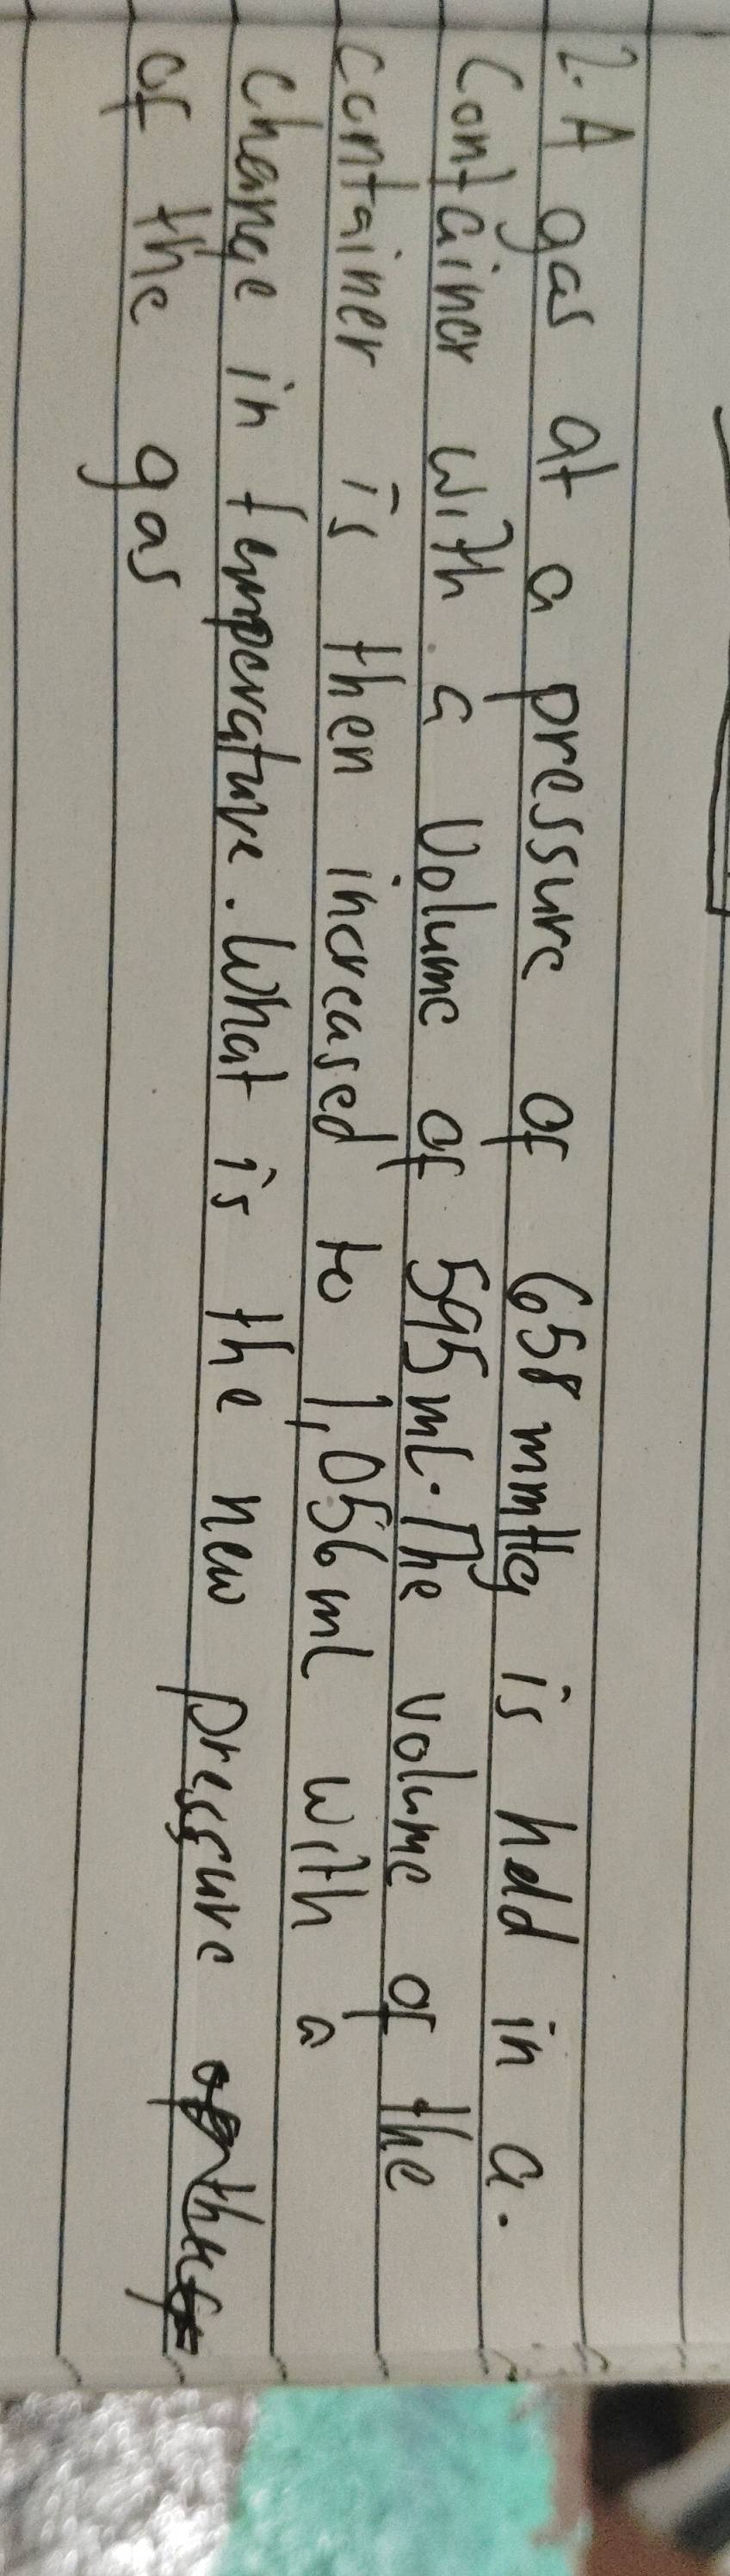 2. A gas at a pressure of 658 mmHg is held in a.
Container with a volume of 595mL. The volume of the
container is then increased to 1,056ml with a
change in temperature. What is the new pressure
of the gas